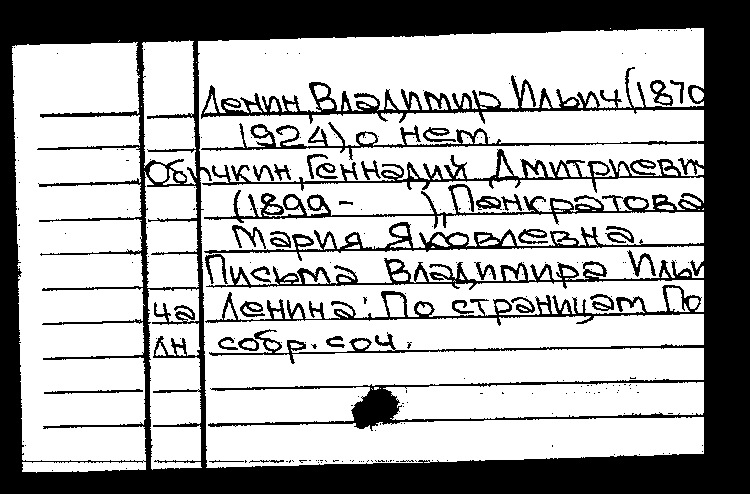 Ленин, Владимир Ильич (1870
1924), о нем.
Обичкин, Геннадий Дмитриеви
(1899- ), Панкратова
Мария Яковлевна.
Письма Владимира Ильи
ча Ленина: По страницам По
лн. собр. соч.